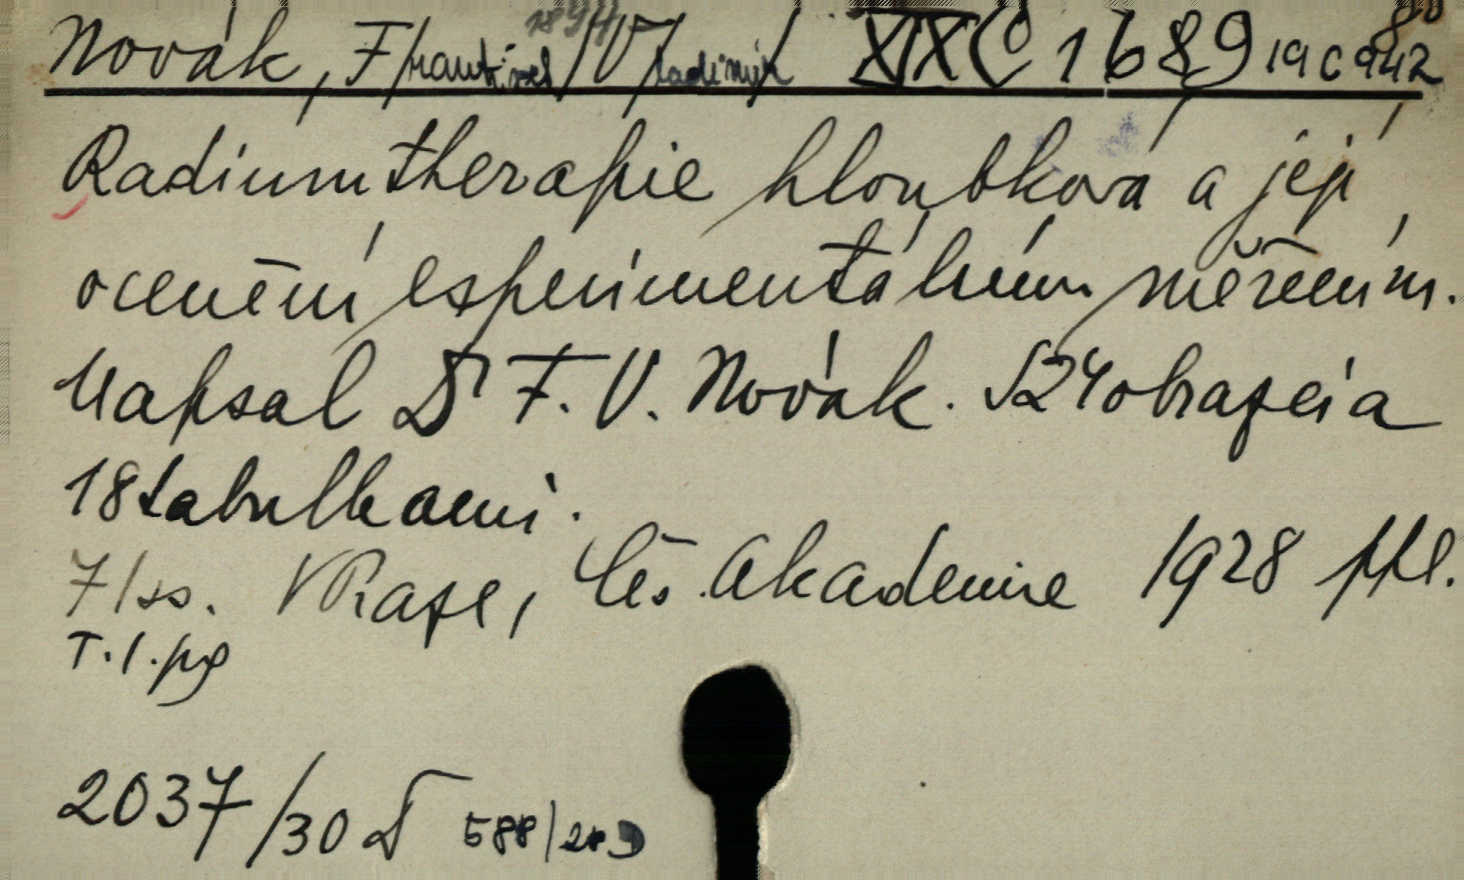 Novák, F/rantišek/ V/ladimír/ XIX C 1689, 19 C 942
Radiumtherapie hloubková a její
ocenění experimentálním měřením.
Napsal Dr F. V. Novák. S 24 obrazci a
18 tabulkami.
71 ss. V Praze, Čes. Akademie 1928 ppl.
T. I. pg
2037/30 D 588/28 D